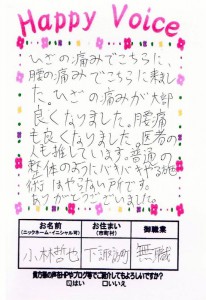 Happy Voice
ひざの痛みでこちらに、
腰の痛みでこちらに来まし
た。ひざの痛みが大部
良くなりました。腰痛
も良くなりました。医者の
人も推しています。普通の
整体のようにバキバキやる施
術はやらない所です。
ありがとうございました。
お名前 お住まい 御職業
(ニックネーム・イニシャル可) (市町村)
小林哲也 下諏訪町 無職
貴方様の声をHPやブログ等でご紹介してもよろしいですか?
☑はい □いいえ